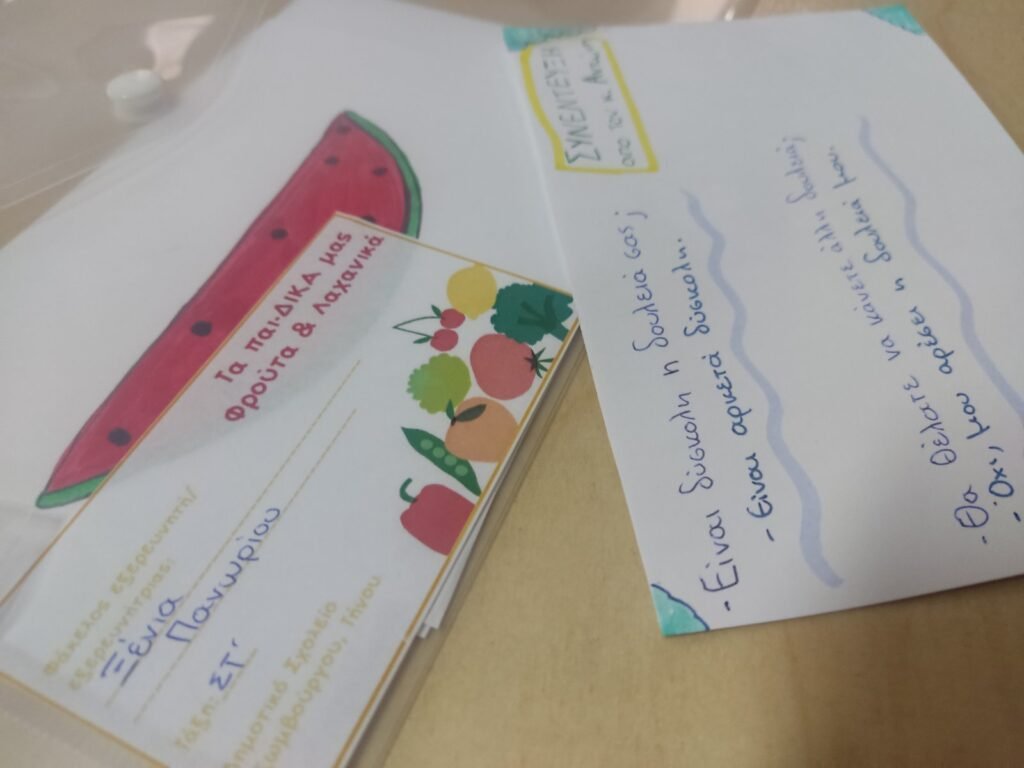 Τα παι-ΔΙΚΑ μας
Φρούτα & Λαχανικά
Φάκελος εξερευνητή/
εξερευνήτριας:
Ξένια
Πανωρίου
Τάξη: ΣΤ'
Δημοτικό Σχολείο
Ξωμβούργου, Τήνου
ΣΥΝΕΝΤΕΥΞΗ
απο τον κ.
- Είναι δύσκολη η δουλειά σας;
- Είναι αρκετά δύσκολη.
- Θα θέλατε να κάνετε άλλη δουλειά;
- Όχι, μου αρέσει η δουλειά μου.